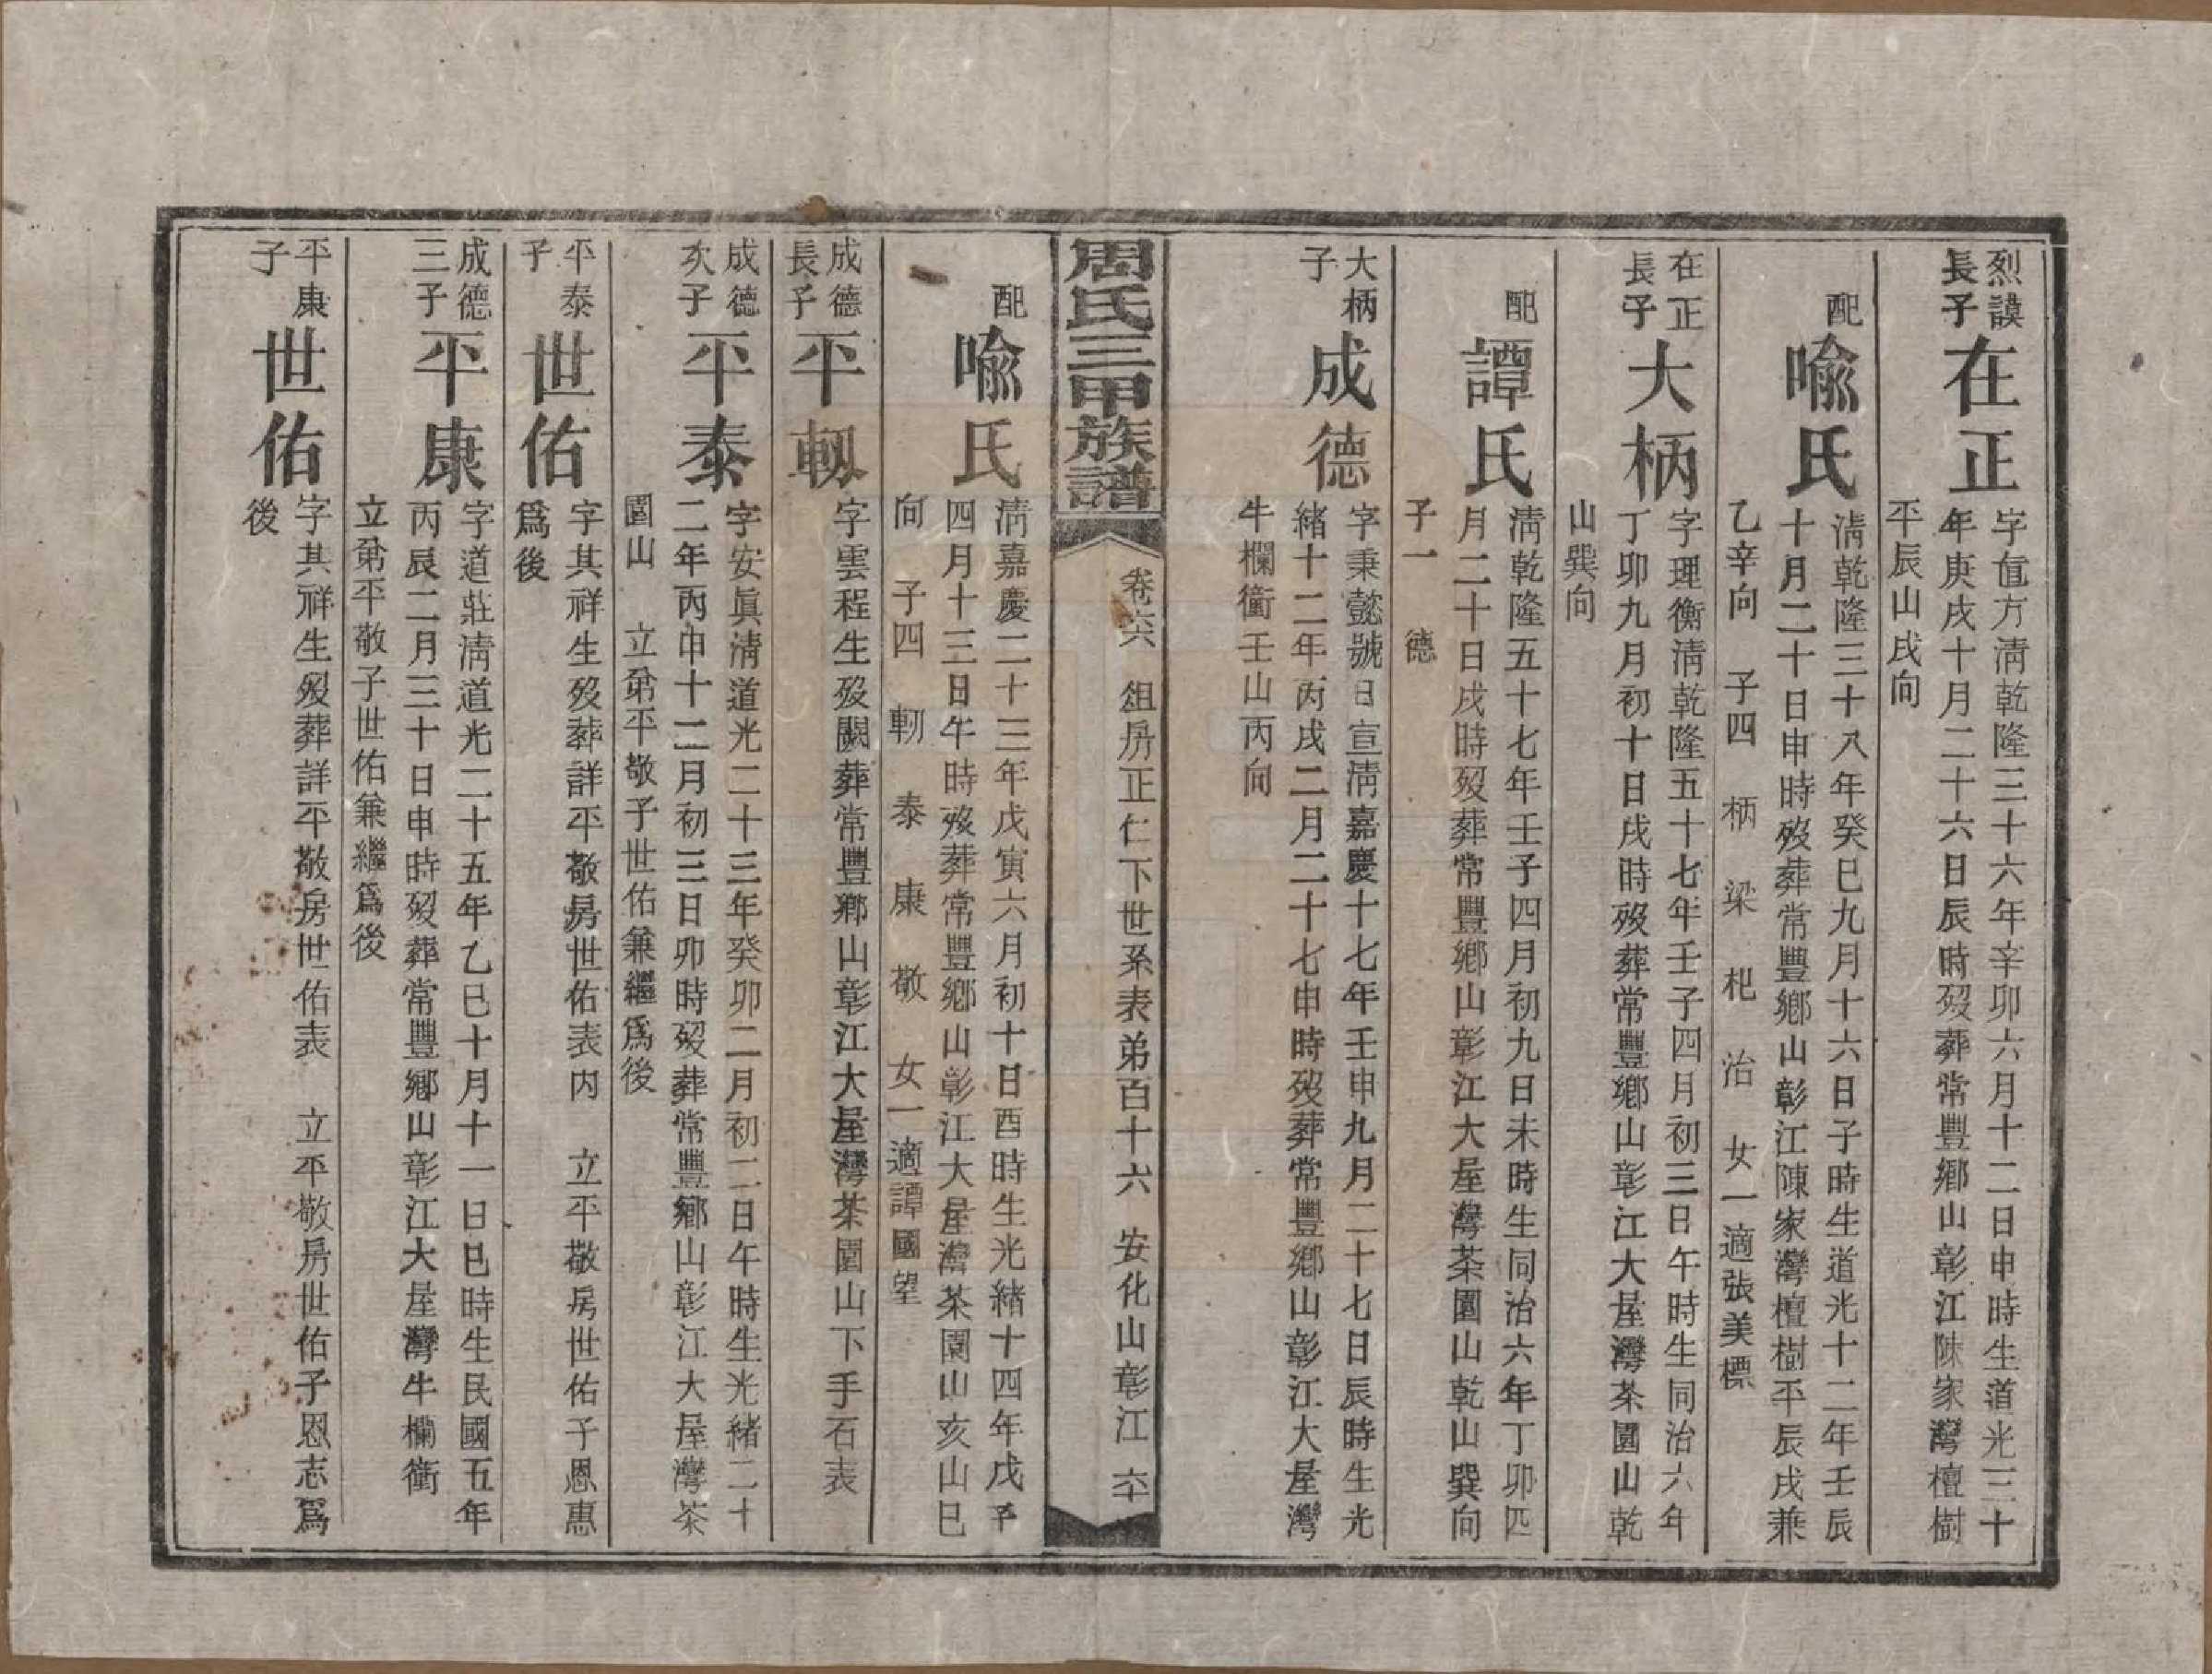 烈謨
長子
在正
字值方清乾隆三十六年辛卯六月十二日申時生道光三十
年庚戌十月二十六日辰時歿葬常豐鄉山彰江陳家灣檀樹
平辰山戌向
配
喩氏
清乾隆三十八年癸巳九月十六日子時生道光十二年壬辰
十月二十日申時歿葬常豐鄉山彰江陳家灣檀樹平辰戌兼
乙辛向 子四 柄 梁 杞 治 女一適張美標
在正
長子
大柄
字理衡清乾隆五十七年壬子四月初三日午時生同治六年
丁卯九月初十日戌時歿葬常豐鄉山彰江大屋灣茶園山乾
山巽向
配
譚氏
清乾隆五十七年壬子四月初九日未時生同治六年丁卯四
月二十日戌時歿葬常豐鄉山彰江大屋灣茶園山乾山巽向
子一 德
大柄
子
成德
字秉懿號日宣清嘉慶十七年壬申九月二十七日辰時生光
緒十二年丙戌二月二十七申時歿葬常豐鄉山彰江大屋灣
牛欄衝壬山丙向
周氏三甲族譜
卷六 組房正仁下世系表弟百十六 安化山彰江 六十
配
喩氏
清嘉慶二十三年戊寅六月初十日酉時生光緒十四年戊子
四月十三日午時歿葬常豐鄉山彰江大屋灣茶園山亥山巳
向 子四 軔 泰 康 敬 女一適譚國望
成德
長子
平軔
字雲程生歿闕葬常豐鄉山彰江大屋灣茶園山下手石表
成德
次子
平泰
字安眞清道光二十三年癸卯二月初二日午時生光緒二十
二年丙申十二月初三日卯時歿葬常豐鄉山彰江大屋灣茶
園山 立弟平敬子世佑兼繼爲後
平泰
子
世佑
字其祥生歿葬詳平敬房世佑表内 立平敬房世佑子恩惠
爲後
成德
三子
平康
字道莊清道光二十五年乙巳十月十一日巳時生民國五年
丙辰二月三十日申時歿葬常豐鄉山彰江大屋灣牛欄衝
立弟平敬子世佑兼繼爲後
平康
子
世佑
字其祥生歿葬詳平敬房世佑表 立平敬房世佑子恩志爲
後